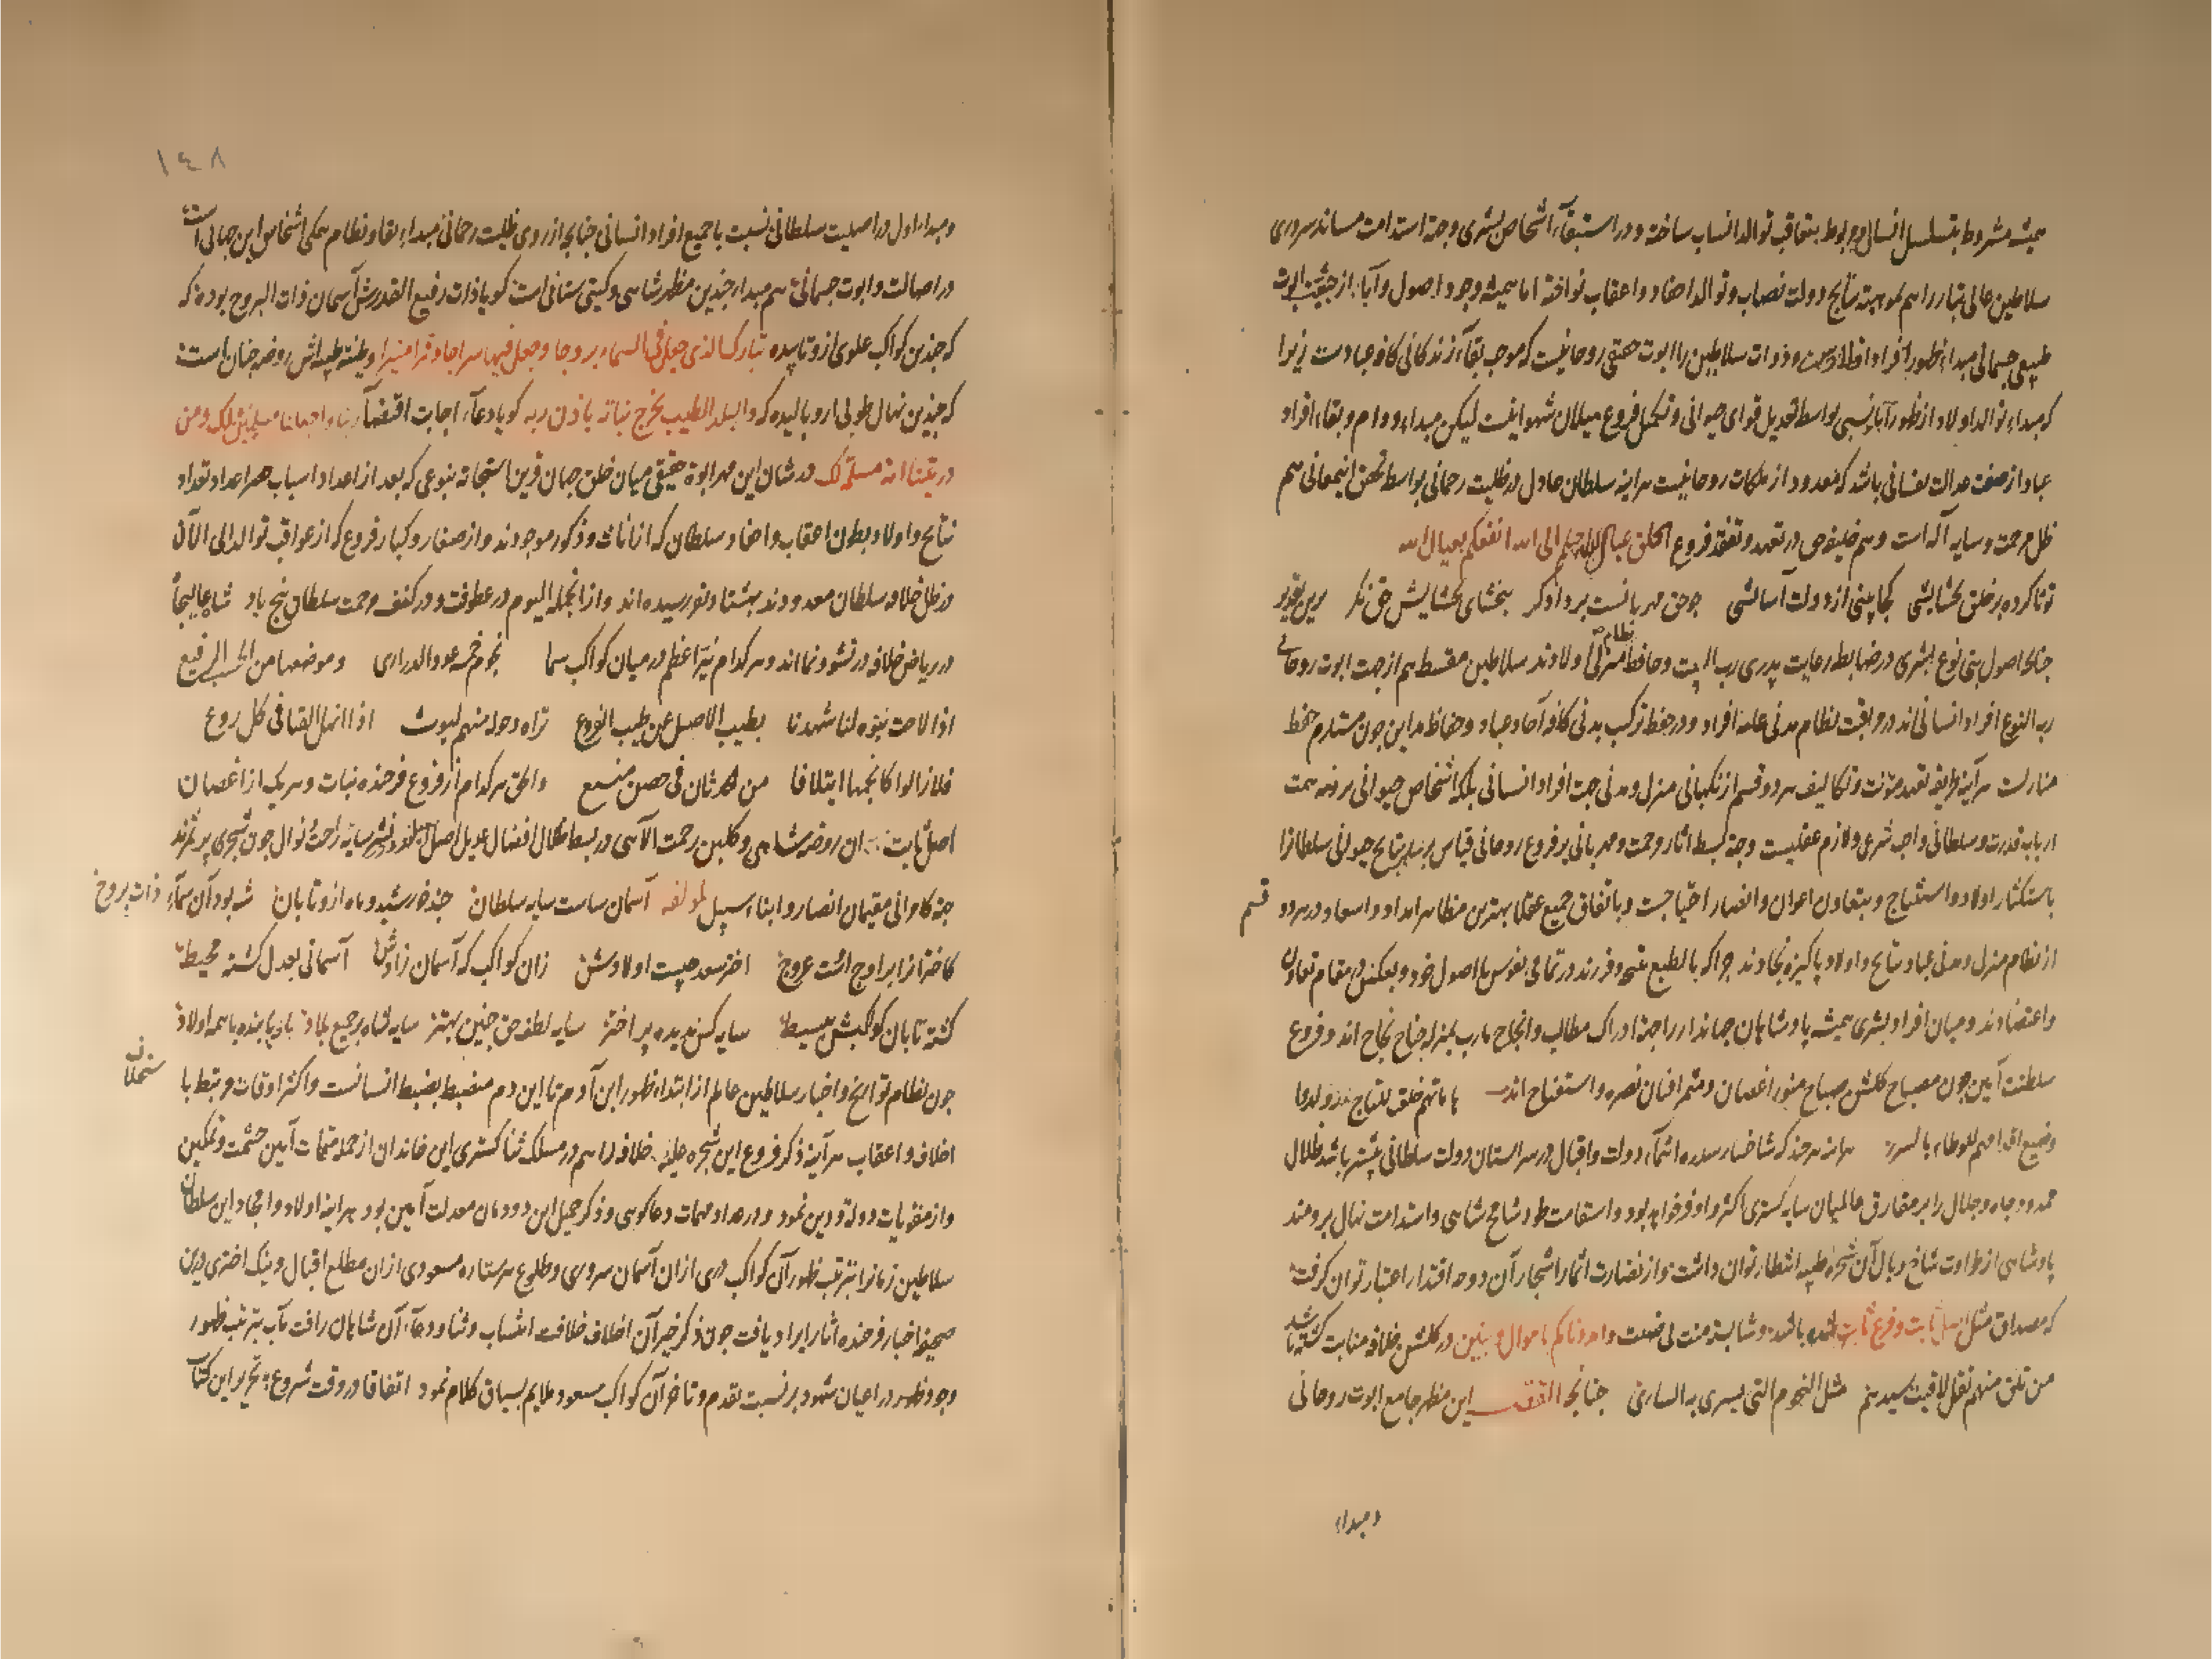 همیشه مشروط بتسلسل انسال و مربوط بتعاقب توالد انساب ساخته و در استبقآء اشخاص بشری و جهة استدامت مساند سروری
سلاطین عالی تبار را هم بموهبته نتایج دولت نصاب و توالد احفاد و اعقاب نواخته اما همیشه وجود اصول و آباء از حیثیت ابوت
طبیعی جسمانی مبداء ظهور افراد اولادست و ذوات سلاطین را ابوت حقیقی روحانیست که موجب بقآء زندگانی کافه عبادست زیرا
که مبداء توالد اولاد از ظهور آباء نسبی بواسطه تعدیل قوای حیوانی و تکمیل فروع میلان شهوانیست لیکن مبداء دوام و بقاء افراد
عباد از صفت عدالت نفسانی باشد که معدود از ملکات روحانیست هراینه سلطان عادل در ظلیت رحمانی بواسطه هم
ظل مرحمت و سایه آله است و هم خلیفه حق در تعهد و تفقد فروع الخلق عیال الله احبهم الی الله انفعکم بعیال الله
تو ناکرده بر خلق بخشایشی کجا بینی از دولت آسایشی چو حق مهربانست بر دادگر ببخشای بخشایش حق نگر برین تقدیر
جنانجه اصول بنی نوع بشری در ضابطه رعایت پدری رب البیت و حافظ نظام منزل اولادند سلاطین مقسط هم از جهت ابوت روحانی
رب النوع افراد انسانی اند در مراقبت نظام مدنی عامه افراد و در حفظ ترکیب بدنی کافه آحاد عباد و حفاظ مداین جون مستلزم حفظ
منازلست هرآینه طریقه تعهد مؤنت و تکالیف هر دو قسم از نکهبانی منزل و مدنی جهت افراد انسانی بلکه اشخاص حیوانی بر ذمه همت
ارباب قدرت و سلطانی واجب شرعی و لازم عقلیست و جهة بسط اثار رحمت و مهربانی بر فروع روحانی قیاس بر نتایج حیوانی سلطانرا
باستکثار اولاد و استنتاج و بتعاون اعوان و انصار احتیاجست و باتفاق جمیع عقلا بهترین مظاهر امداد و اسعاد در هر دو قسم
از نظام منزل و مدنی عباد نتایج و اولاد پاکیزه نجادند جراکه بالطبع نتیجه و فرزند در تمامی نفوس با اصول خود و بعکس در مقام تعاون
و اعتضادند و میان افراد بشری همیشه پادشاهان جهاندار را جهة ادراک مطالب و انجاح مارب بمنزله جناح نجاح اند و فروع
سلطنت آیین جون مصباح کلشن صباح منور اغصان و مثمر افنان نصره و استفتاح اند
هراینه هرجند که شاخسار سدره انتمآء دولت و اقبال در سرابستان دولت سلطانی بیشتر باشد ظلال
ممدود جاه و جلال را بر مفارق عالمیان سایه کستری اکثر و اوفر خواهد بود و استقامت طود شامخ شاهی و استدامت نهال برومند
پادشاهی از طراوت شاخ و بال آن شجره طیبه انتظار توان داشت و از نضارت اثمار اشجار آن دوحه اقتدار اعتبار توان کرفت
که مصداق مثل اصل ثابت و فرع ثابت باشد و شایسته منت و امددناکم باموال و بنین در کلشن خلافه منابت کشته باشد
من تلق منهم تقل لاقیت سیدهم مثل النجوم التی یسری بها الساری جنانجه این مظهر جامع ابوت روحانی
و مبداء
١٤٨
و مبداء اول در اصلیت سلطانی نسبت با جمیع افراد انسانی جنانجه از روی ظلیت رحمانی مبداء بقا و نظام همکی اشخاص این جهانی است
در اصالت و ابوت جسمانی هم مبداء جندین مظهر شاهی و کیتی ستانی است کویا ذات رفیع القدرش آسمان ذات البروج بوده که
که جندین کواکب علوی ازو تابیده تبارک الذی جعل فی السماء بروجا و جعل فیها سراجا و قمرا منیرا و طینته طیبه اش روضه جنان است
که جندین نهال طوبی ازو بالیده که والبلد الطیب یخرج نباته باذن ربه کویا دعآء اجابت اقتضآء ربنا و اجعلنا مسلمین لک و من
ذریتنا امة مسلمة لک در شان این مهر ابوة حقیقی میان خلق جهان قرین استجابه بنوعی که بعد از اعداد اسباب حصر اعداد تعداد
نتایج و اولاد و بطون اعقاب و احفاد سلطان که از اناث و ذکور موجودند و از صغار و کبار فروع که از عواقب توالد الی الآن
در ظل خلافه سلطان معدودند بهشتاد نفر رسیده اند و از انجمله الیوم در عطوفت و در کنف مرحمت سلطان پنج باد شاه عالیجاه
در ریاض خلافه در نشو و نما اند و هر کدام نیّر اعظم در میان کواکب سما نجوم خمسه عدد الدراری و موضعها من الحسب الرفیع
اذا لاحت بنوه لنا شهدنا بطیب الاصل عن طیب الفروع تراه و حوله منهم لیوث اذا انهل القنا فی کل روع
فلا زالوا کانجمها ائتلافا من الحدثان فی حصن منیع والحق هر کدام از فروع فرخنده نبات و هر یک از اغصان
اصل ثابت ان روضه شاهی و کلبن رحمت الآهی در بسط ظلال افضال عدیل اصل خود و نشر سایه راحت و نوال جون شجری پر ثمرند
جهة کامرانی مقیمان انصار و ابناء سبیل لمؤلفه آسمان ساست سایه سلطان جند خورشید و ماه ازو تابان شه بود آن سماء ذات بروج
کاخترانرا بر اوج اشت عروج اختر سعد جیست اولادش زان کواکب که آسمان زادش آسمانی بعدل کشته محیط
کشته تابان کواکبش بسیط سایه کس ندیده پر اختر سایه لطف حق جنین بهتر سایه شاه بر جمیع بلاد باد پاینده با همه اولاد
جون نظام تواریخ و اخبار سلاطین عالم از ابتداء ظهور ابن آدم تا این دم منضبط بضبط انسانست و اکثر اوقات مرتبط با
اخلاف و اعقاب هرآینه ذکر فروع این شجره علیه خلافه را هم در مسلک ثنا کستری این خاندان از جمله متممات آیین حشمت و تمکین
و از مقویات دولة و دین نمود و در عداد مهمات دعاکویی و ذکر جمیل این دودمان معدلت آیین بود هراینه اولاد و امجاد این سلطان
سلاطین زمانرا بترتیب ظهور آن کواکب دری از ان آسمان سروری و طلوع هر ستاره مسعودی ازان مطلع اقبال و نیک اختری درین
صحیفه اخبار فرخنده اثار ایراد یافت جون ذکر خیر آن اخلاف خلافت انتساب و ثنا و دعآء آن شاهان رافت مآب بترتیب ظهور
وجود و ظهور در اعیان شهود بر نسبت تقدم و تاخر آن کواکب مسعود ملایم بسیاق کلام نمود اتفاقا در وقت شروع بتحریر این کتاب